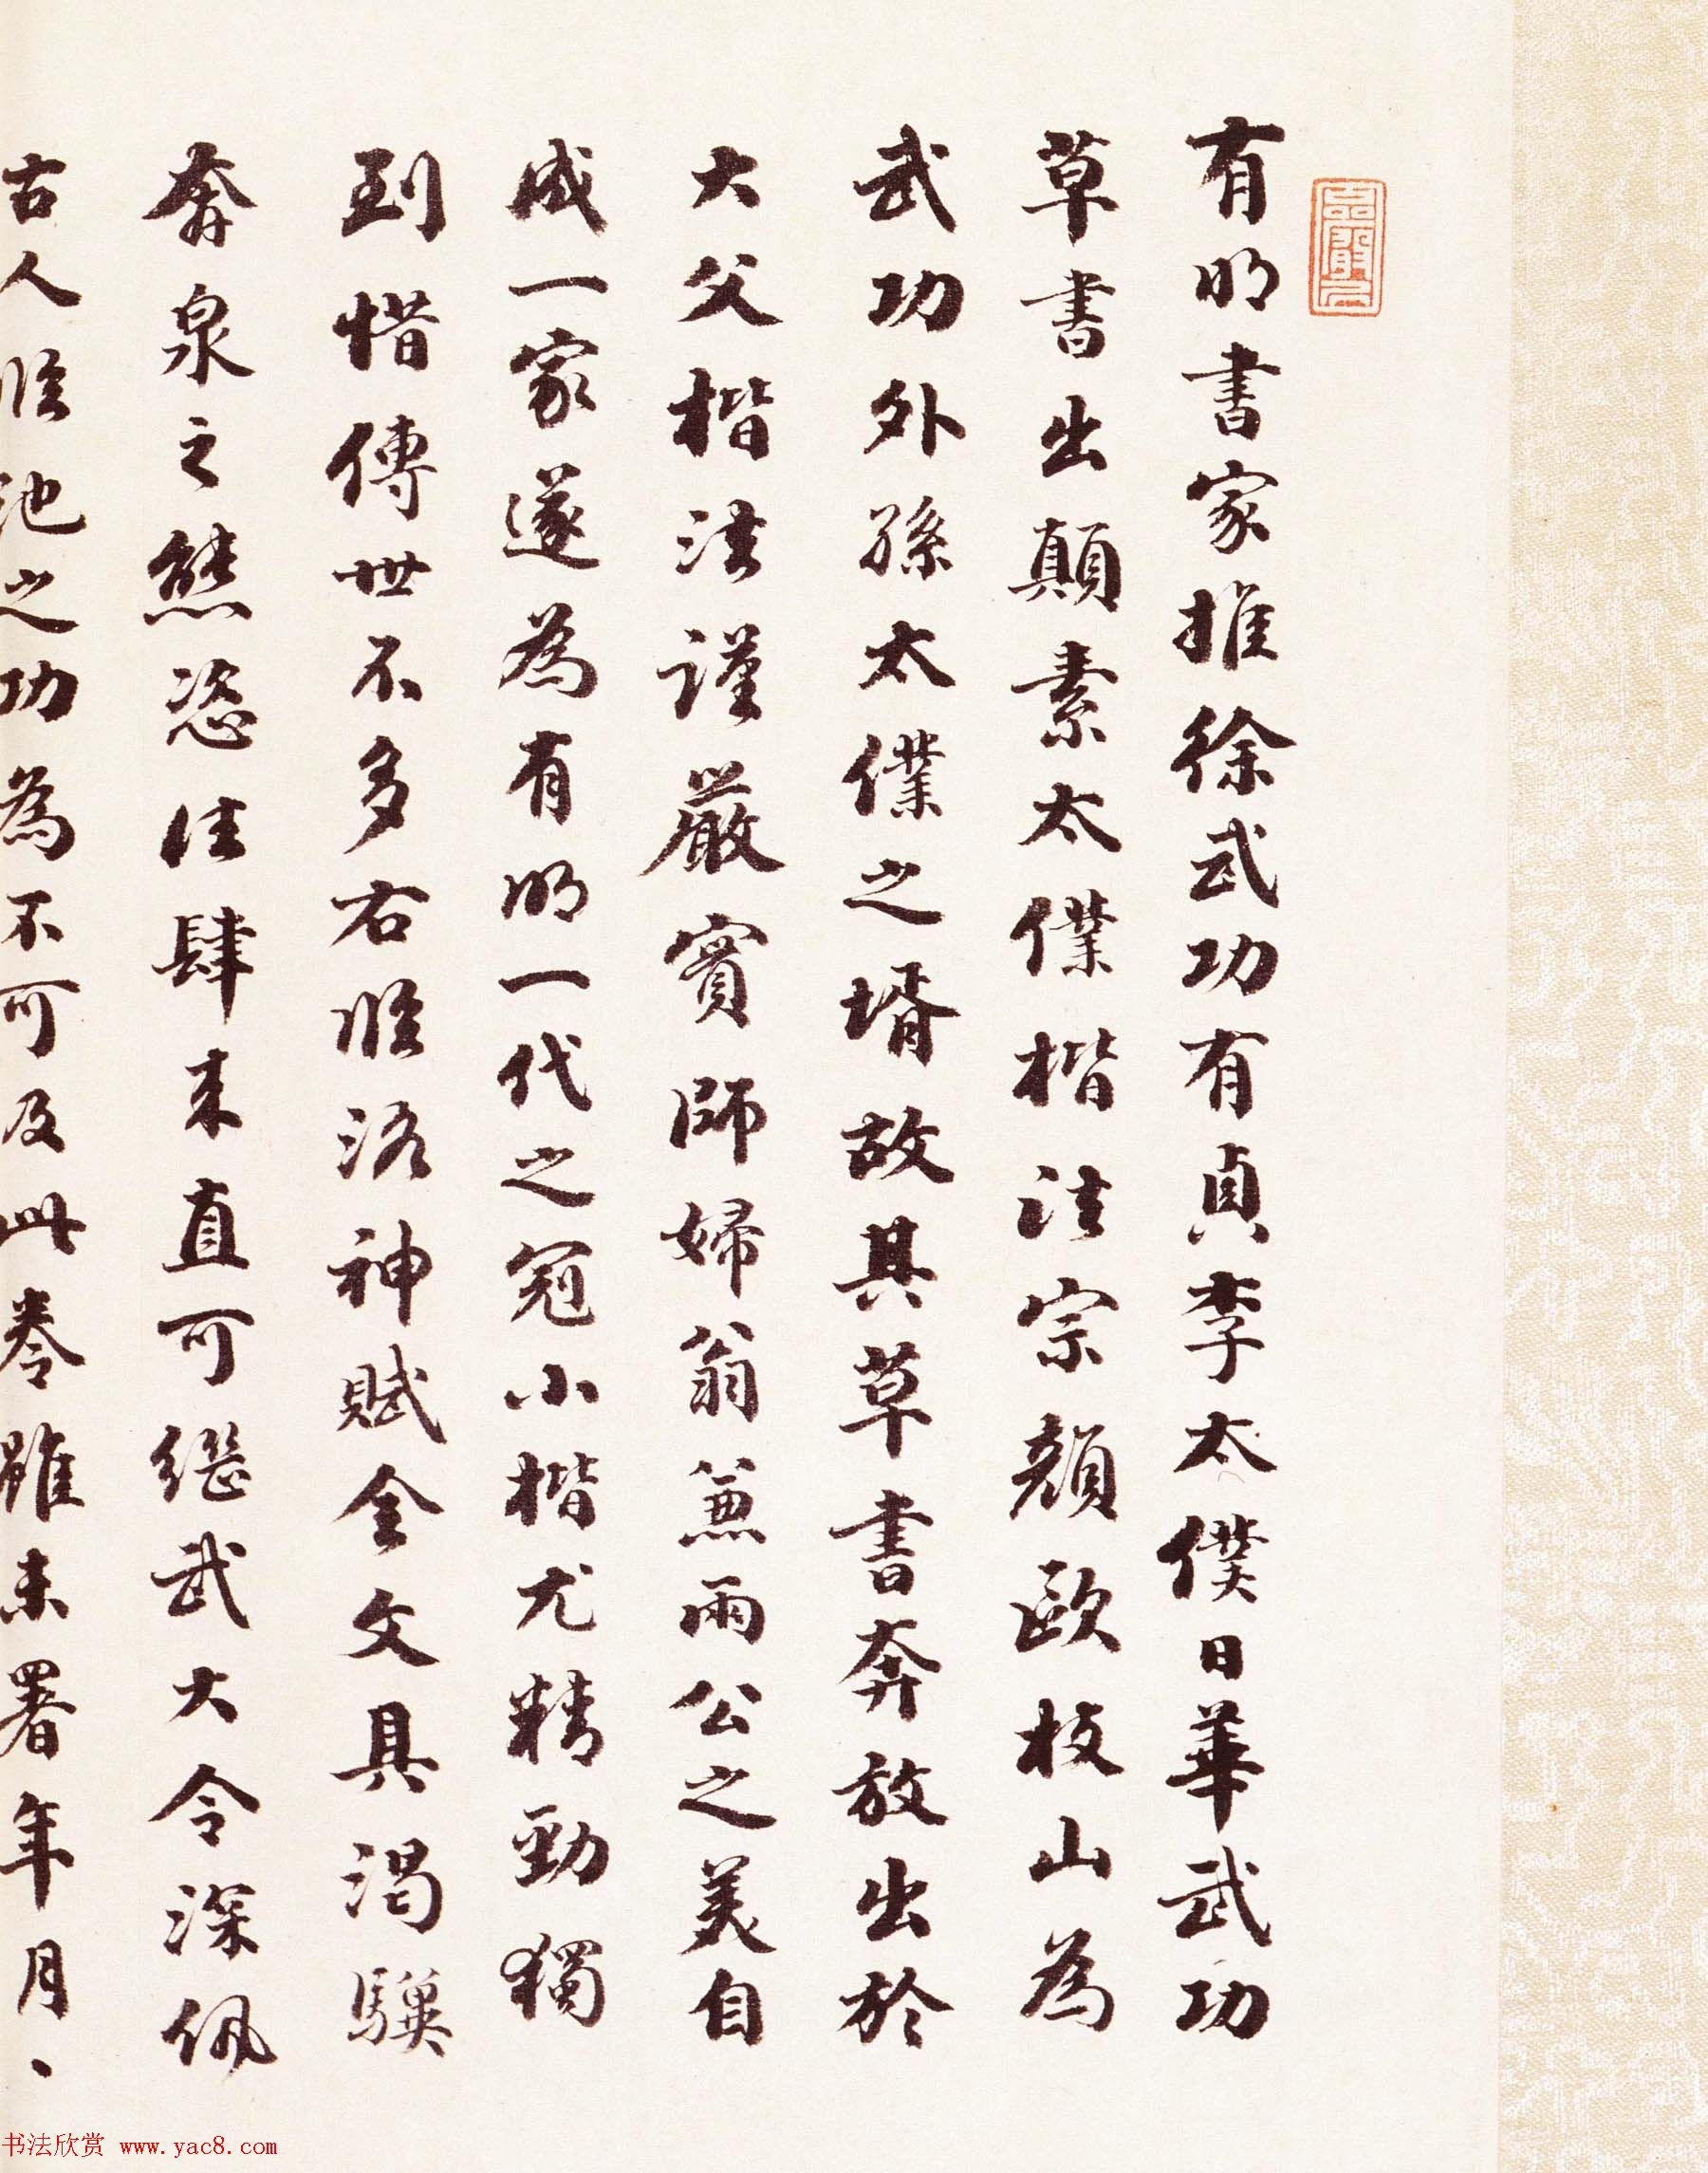 有明書家推徐武功有貞李太僕日華武功
草書出顛素太僕楷法宗顏歐枝山為
武功外孫太僕之壻故其草書奔放出於
大父楷法謹嚴實師婦翁兼兩公之美自
成一家遂為有明一代之冠小楷尤精勁獨
到惜傳世不多右臨洛神賦全文具渴驥
奔泉之態恣性肆来直可繼武大令深佩
古人臨池之功為不可及此卷雖未署年月、
书法欣赏 www.yac8.com